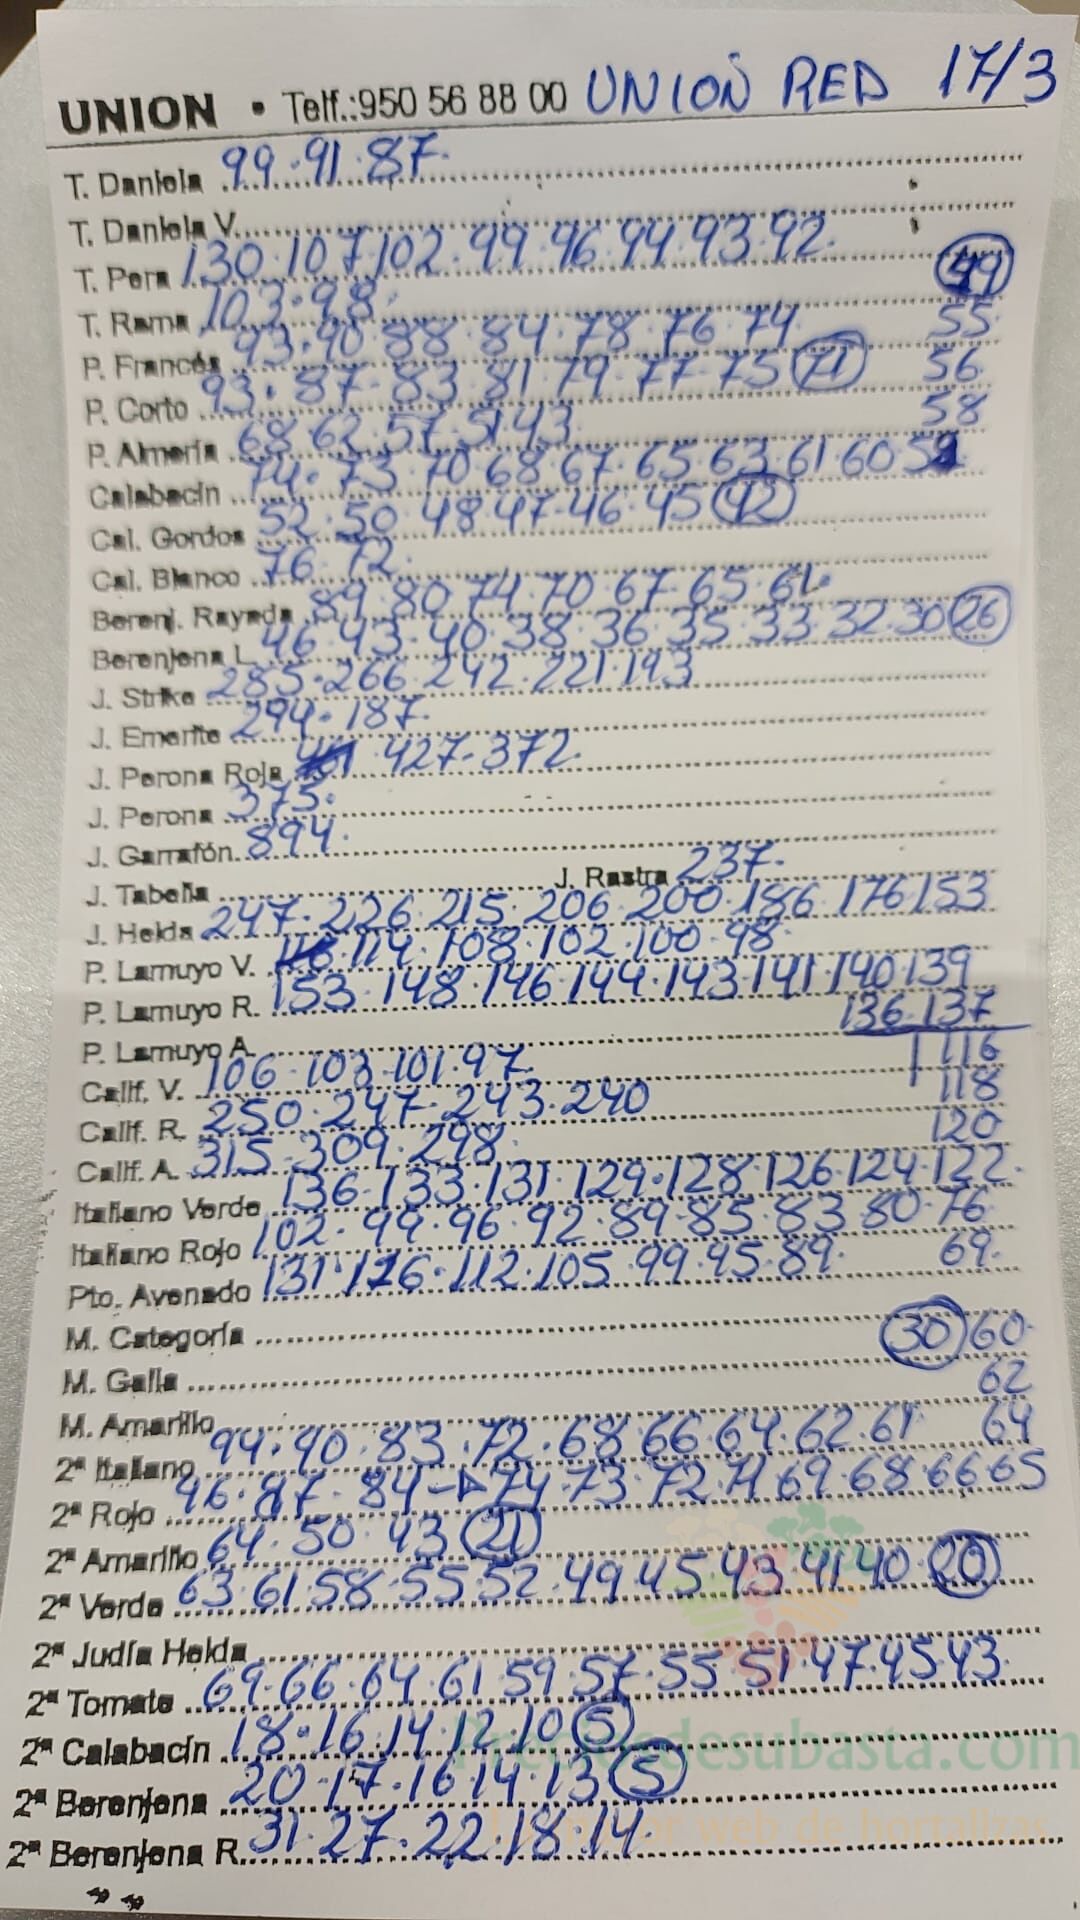 UNION • Telf.:950 56 88 00 UNION RED 17/3
T. Daniela 99.91.87.
T. Daniela V.
T. Pera 130.107.102.99.96.94.93.92. 49
T. Rama 103.98. 55
P. Francés 93.90.88.84.78.76.74. 56
P. Corto 93.87.83.81.79.77.75 71 58
P. Almería 68.62.57.51.43
Calabacín 74.73.70.68.67.65.63.61.60.59
Cal. Gordos 52.50.48.47.46.45 42
Cal. Blanco 76.72.
Berenj. Rayada 89.80.74.70.67.65.61.
Berenjena L. 46.43.40.38.36.35.33.32.30 26
J. Strike 285.266.242.221.193
J. Emerite 294.187.
J. Perona Roja 427.372.
J. Perona 375.
J. Garrafón 894.
J. Tabella J. Rastra 237.
J. Helda 247.226.215.206.200.186.176.153
P. Lamuyo V. 114.108.102.100.98.
P. Lamuyo R. 153.148.146.144.143.141.140.139
P. Lamuyo A. 136.137
Calif. V. 106.103.101.97. 116
Calif. R. 250.247.243.240 118
Calif. A. 315.309.298. 120
Italiano Verde 136.133.131.129.128.126.124.122.
Italiano Rojo 102.99.96.92.89.85.83.80.76
Pto. Avenado 131.126.112.105.99.95.89. 69.
M. Categoría 30 60.
M. Galia 62
M. Amarillo 64
2ª Italiano 94.90.83.72.68.66.64.62.61
2ª Rojo 96.87.84→74.73.72.71.69.68.66.65
2ª Amarillo 64.50.43 21
2ª Verde 63.61.58.55.52.49.45.43.41.40. 20
2ª Judía Helda
2ª Tomate 69.66.64.61.59.57.55.51.47.45.43.
2ª Calabacín 18.16.14.12.10 5
2ª Berenjena 20.17.16.14.13 5
2ª Berenjena R. 31.27.22.18.14.
Preciosdesubasta.com
web de hortalizas